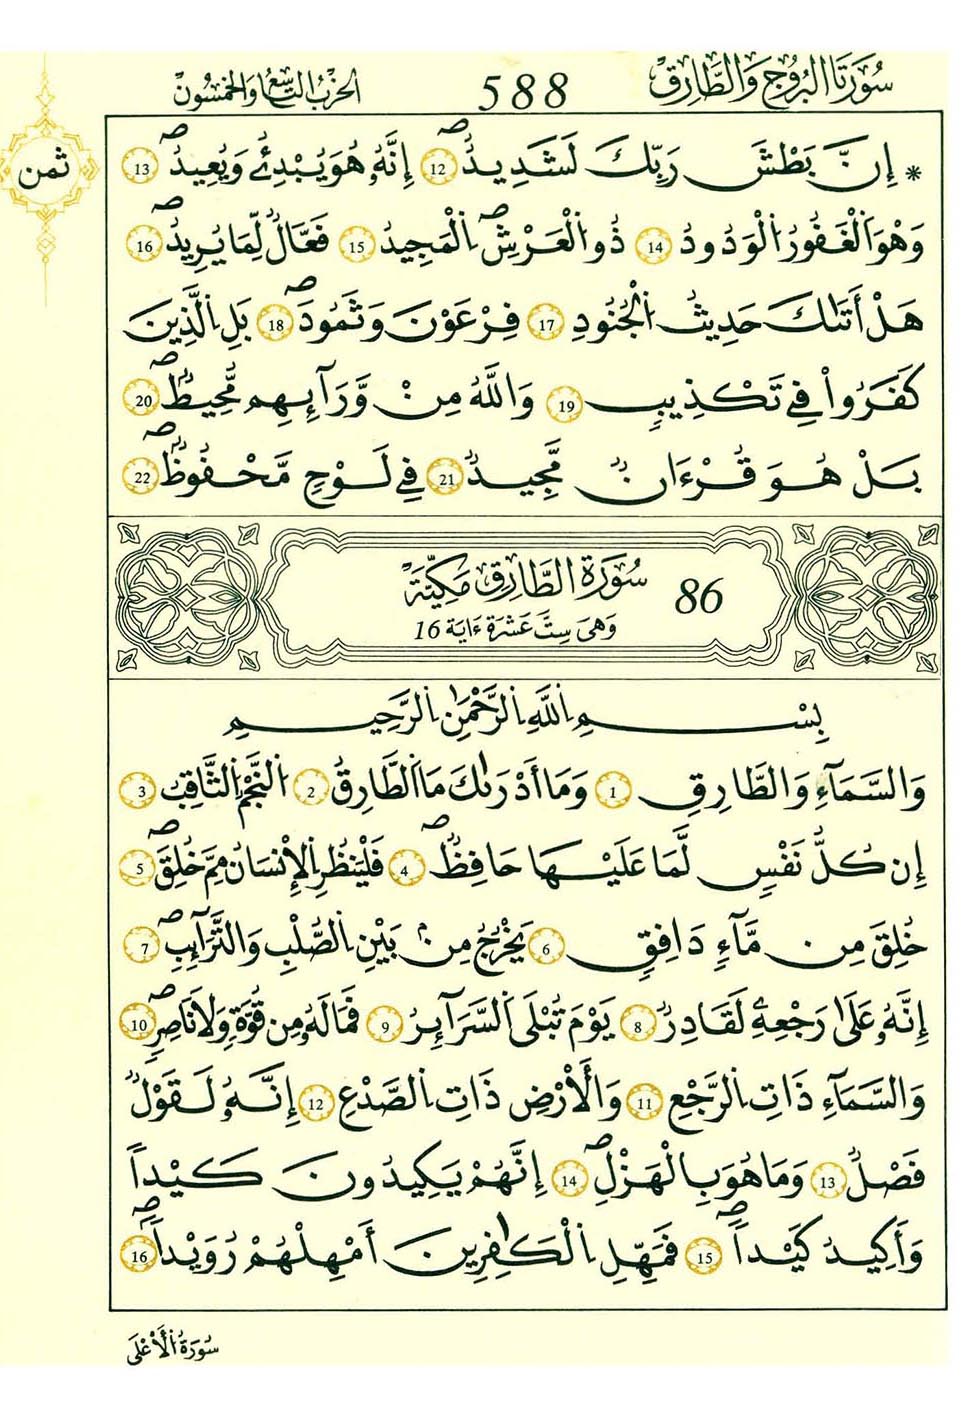 سُورَتَا الْبُرُوجِ وَالطَّارِقِ 588 الحِزْبُ التَّاسِعُ وَالْخَمْسُونَ
ثمن
* إِنَّ بَطْشَ رَبِّكَ لَشَدِيدٌ ۖ 12 إِنَّهُۥ هُوَ يُبْدِئُ وَيُعِيدُ ۖ 13
وَهُوَ اَ۬لْغَفُورُ اُ۬لْوَدُودُ 14 ذُو اُ۬لْعَرْشِ ۖ اِ۬لْمَجِيدُ 15 فَعَّالٌ لِّمَا يُرِيدُ ۖ 16
هَلْ أَتَىٰكَ حَدِيثُ اُ۬لْجُنُودِ 17 فِرْعَوْنَ وَثَمُودَ ۖ 18 بَلِ اِ۬لذِينَ
كَفَرُواْ فِے تَكْذِيبٍ 19 وَاللَّهُ مِنْ وَّرَآئِهِم مُّحِيطٌ ۖ 20
بَلْ هُوَ قُرْءَانٌ مَّجِيدٌ 21 فِے لَوْحٍ مَّحْفُوظٌ ۖ 22
سُورَةُ الطَّارِقِ مَكِّيَّة 86
وَهِيَ سِتَّ عَشْرَةَ ءَايَة 16
بِسْمِ اِ۬للَّهِ اِ۬لرَّحْمَٰنِ اِ۬لرَّحِيمِ
وَالسَّمَآءِ وَالطَّارِقِ 1 وَمَا أَدْرَىٰكَ مَا اَ۬لطَّارِقُ 2 اُ۬لنَّجْمُ اُ۬لثَّاقِبُ 3
إِن كُلُّ نَفْسٍ لَّمَا عَلَيْهَا حَافِظٌ ۖ 4 فَلْيَنظُرِ اِ۬لْإِنْسَٰنُ مِمَّ خُلِقَ ۖ 5
خُلِقَ مِن مَّآءٍ دَافِقٍ 6 يَخْرُجُ مِنۢ بَيْنِ اِ۬لصُّلْبِ وَالتَّرَآئِبِ ۖ 7
إِنَّهُۥ عَلَىٰ رَجْعِهِۦ لَقَادِرٌ 8 يَوْمَ تُبْلَى اَ۬لسَّرَآئِرُ 9 فَمَا لَهُۥ مِن قُوَّةٍ وَلَا نَاصِرٍ ۖ 10
وَالسَّمَآءِ ذَاتِ اِ۬لرَّجْعِ 11 وَالْأَرْضِ ذَاتِ اِ۬لصَّدْعِ 12 إِنَّهُۥ لَقَوْلٌ
فَصْلٌ 13 وَمَا هُوَ بِالْهَزْلِ ۖ 14 إِنَّهُمْ يَكِيدُونَ كَيْداً
وَأَكِيدُ كَيْداً ۖ 15 فَمَهِّلِ اِ۬لْكَٰفِرِينَ أَمْهِلْهُمْ رُوَيْداً ۖ 16
سُورَةُ اُ۬لْأَعْلَى